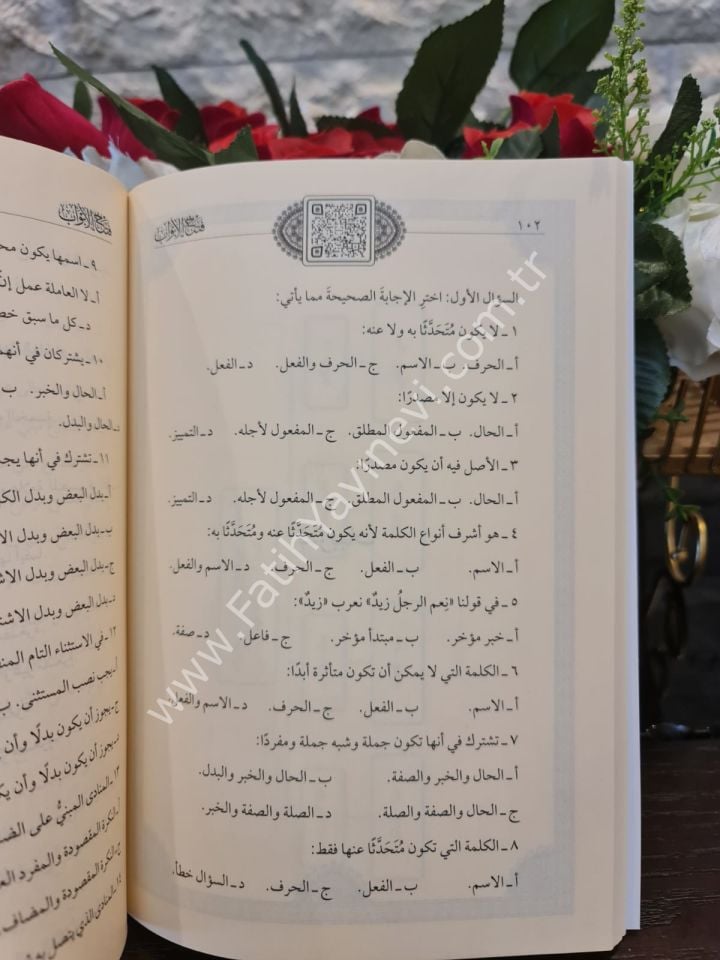 ١٠٢
مفتاح الأبواب
السؤال الأول: اخترِ الإجابةَ الصحيحةَ مما يأتي:
١ ـ لا يكون مُتَحَدَّثًا به ولا عنه:
أ ـ الحرف. ب ـ الاسم. ج ـ الحرف والفعل. د ـ الفعل.
٢ ـ لا يكون إلا مصدرًا:
أ ـ الحال. ب ـ المفعول المطلق. ج ـ المفعول لأجله. د ـ التمييز.
٣ ـ الأصل فيه أن يكون مصدرًا:
أ ـ الحال. ب ـ المفعول المطلق. ج ـ المفعول لأجله. د ـ التمييز.
٤ ـ هو أشرف أنواع الكلمة لأنه يكون مُتَحَدَّثًا عنه ومُتَحَدَّثًا به:
أ ـ الاسم. ب ـ الفعل. ج ـ الحرف. د ـ الاسم والفعل.
٥ ـ في قولنا «نِعم الرجلُ زيدٌ» نعرب «زيدٌ»:
أ ـ خبر مؤخر. ب ـ مبتدأ مؤخر. ج ـ فاعل. د ـ صفة.
٦ ـ الكلمة التي لا يمكن أن تكون متأثرة أبدًا:
أ ـ الاسم. ب ـ الفعل. ج ـ الحرف. د ـ الاسم والفعل.
٧ ـ تشترك في أنها تكون جملة وشبه جملة ومفردًا:
أ ـ الحال والخبر والصفة. ب ـ الحال والخبر والبدل.
ج ـ الحال والصفة والصلة. د ـ الصلة والصفة والخبر.
٨ ـ الكلمة التي تكون مُتَحَدَّثًا عنها فقط:
أ ـ الاسم. ب ـ الفعل. ج ـ الحرف. د ـ السؤال خطأ.
مفتاح الأبواب
٩ ـ اسمها يكون
أ ـ لا العاملة عمل إنّ
د ـ كل ما سبق
١٠ ـ يشتركان في أنهم
أ ـ الحال والخبر. ب
د ـ الحال والبدل.
١١ ـ تشترك في أنها
أ ـ بدل البعض وبدل
ب ـ بدل البعض وبدل
ج ـ بدل البعض وبدل
د ـ بدل البعض وبدل
١٢ ـ في الاستثناء التام
أ ـ يجب نصب المستثنى. ب
ج ـ يجوز أن يكون بدلًا وأن
د ـ يجوز أن يكون بدلًا وأن
١٣ ـ المنادى المبنيُّ على
أ ـ النكرة المقصودة والمفرد
ج ـ النكرة المقصودة والمضاف
١٤ ـ المنادى الذي يتصل به
www.Fatihyayinevi.com.tr